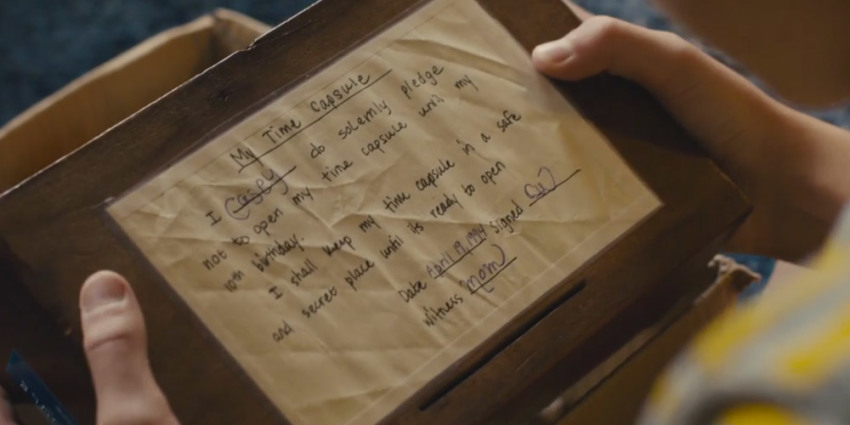 My Time Capsule
I Casey do solemly pledge
not to open my time capsule until my
10th birthday.
I shall keep my time capsule in a safe
and secret place until its ready to open
Date April 19, 1994 Signed
Witness mom